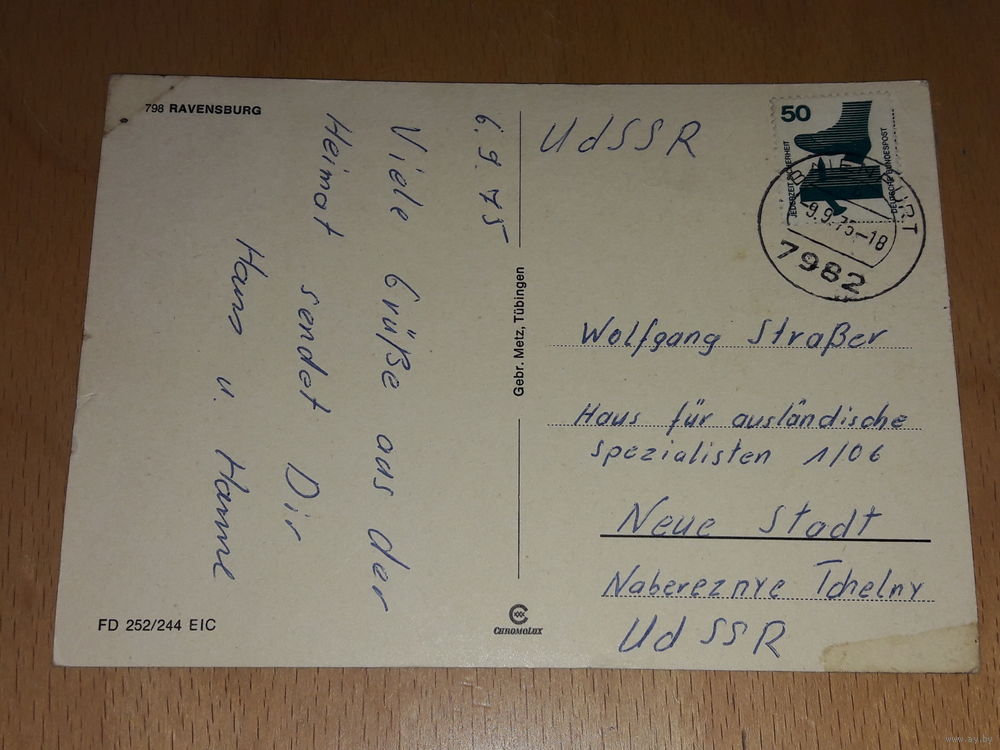 798 RAVENSBURG
6.9.75
Viele Grüße aus der
Heimat sendet Dir
Hans u. Hanne
FD 252/244 EIC
Gebr. Metz, Tübingen
CHROMOLUX
UdSSR
50
JEDERZEIT SICHERHEIT
DEUTSCHE BUNDESPOST
BAIENFURT
-9.9.75-18
7982
Wolfgang Straßer
Haus für ausländische
Spezialisten 1/06
Neue Stadt
Nabereznye Tchelny
UdSSR
www.ay.by